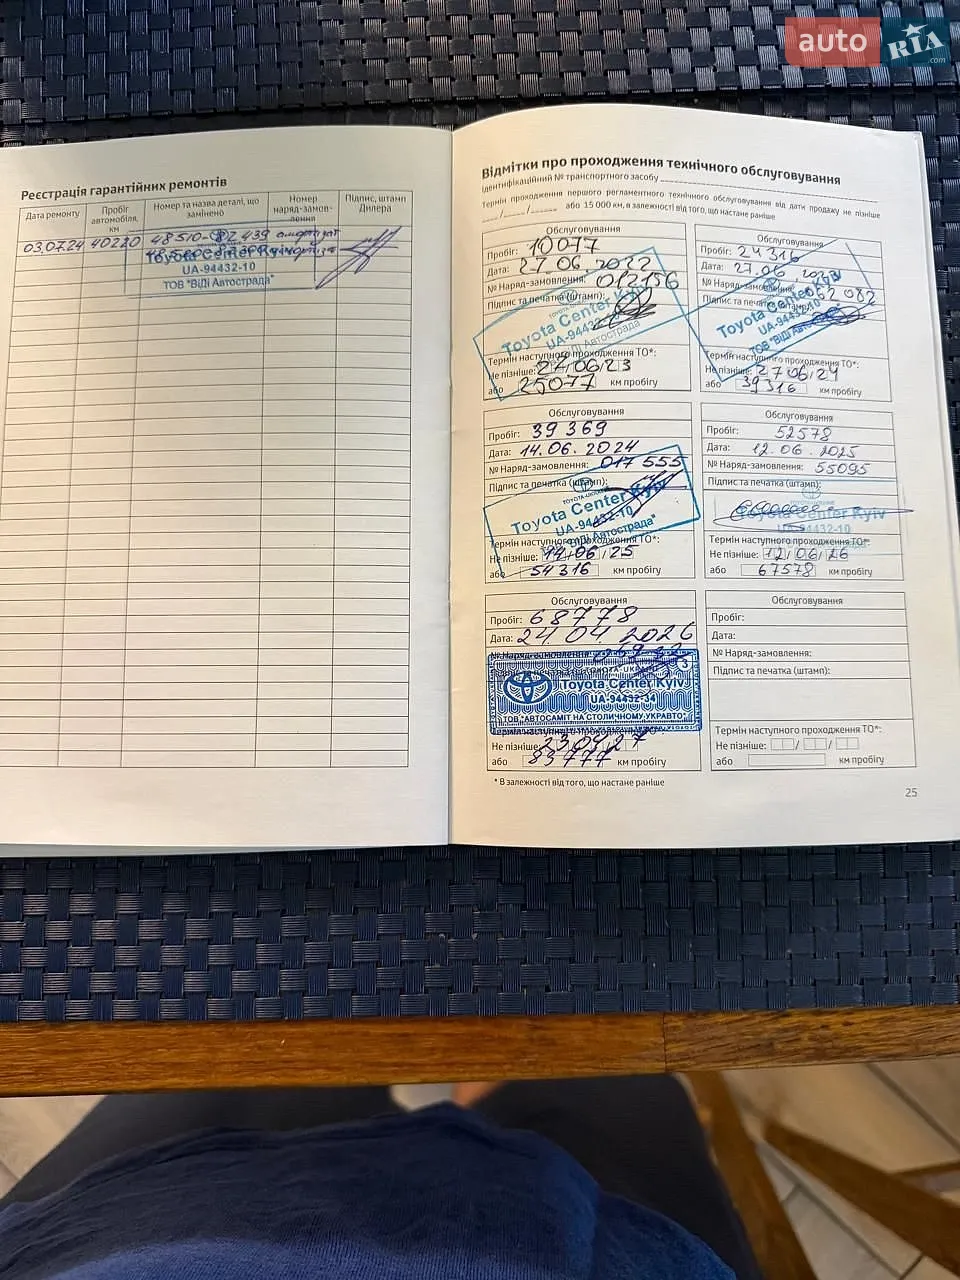 auto RIA .com
Реєстрація гарантійних ремонтів
Дата ремонту
Пробіг автомобіля, км
Номер та назва деталі, що замінено
Номер наряд-замов-лення
Підпис, штамп Дилера
03.07.24 40220 48510-82439 амортизат
Toyota Center Kyiv
UA-94432-10
ТОВ "ВіДі Автострада"
Відмітки про проходження технічного обслуговування
Ідентифікаційний № транспортного засобу
Термін проходження першого регламентного технічного обслуговування від дати продажу не пізніше
або 15 000 км, в залежності від того, що настане раніше
Обслуговування
Пробіг: 10077
Дата: 27.06.2022
№ Наряд-замовлення: 012156
Підпис та печатка (штамп):
Toyota Center Kyiv
UA-94432-10
ВіДі Автострада"
Термін наступного проходження ТО*:
Не пізніше: 27/06/23
або 25077 км пробігу
Обслуговування
Пробіг: 24316
Дата: 27.06.2023
№ Наряд-замовлення: 062082
Підпис та печатка (штамп):
Toyota Center Kyiv
UA-94432-10
ТОВ "ВіДі
Термін наступного проходження ТО*:
Не пізніше: 27/06/24
або 39316 км пробігу
Обслуговування
Пробіг: 39369
Дата: 14.06.2024
№ Наряд-замовлення: 017555
Підпис та печатка (штамп):
Toyota Center Kyiv
UA-94432-10
ВіДі Автострада"
Термін наступного проходження ТО*:
Не пізніше: 14/06/25
або 54316 км пробігу
Обслуговування
Пробіг: 52578
Дата: 12.06.2025
№ Наряд-замовлення: 55095
Підпис та печатка (штамп):
Toyota Center Kyiv
UA-94432-10
Термін наступного проходження ТО*:
Не пізніше: 12/06/26
або 67578 км пробігу
Обслуговування
Пробіг: 68778
Дата: 24.04.2026
№ Наряд-замовлення:
TOYOTA-UKRAINE 3
Toyota Center Kyiv
UA-94432-34
ТОВ "АВТОСАМІТ НА СТОЛИЧНОМУ УКРАВТО"
Термін наступного проходження ТО*:
Не пізніше: 23/04/27
або 83777 км пробігу
Обслуговування
Пробіг:
Дата:
№ Наряд-замовлення:
Підпис та печатка (штамп):
Термін наступного проходження ТО*:
Не пізніше: / /
або км пробігу
* В залежності від того, що настане раніше
25